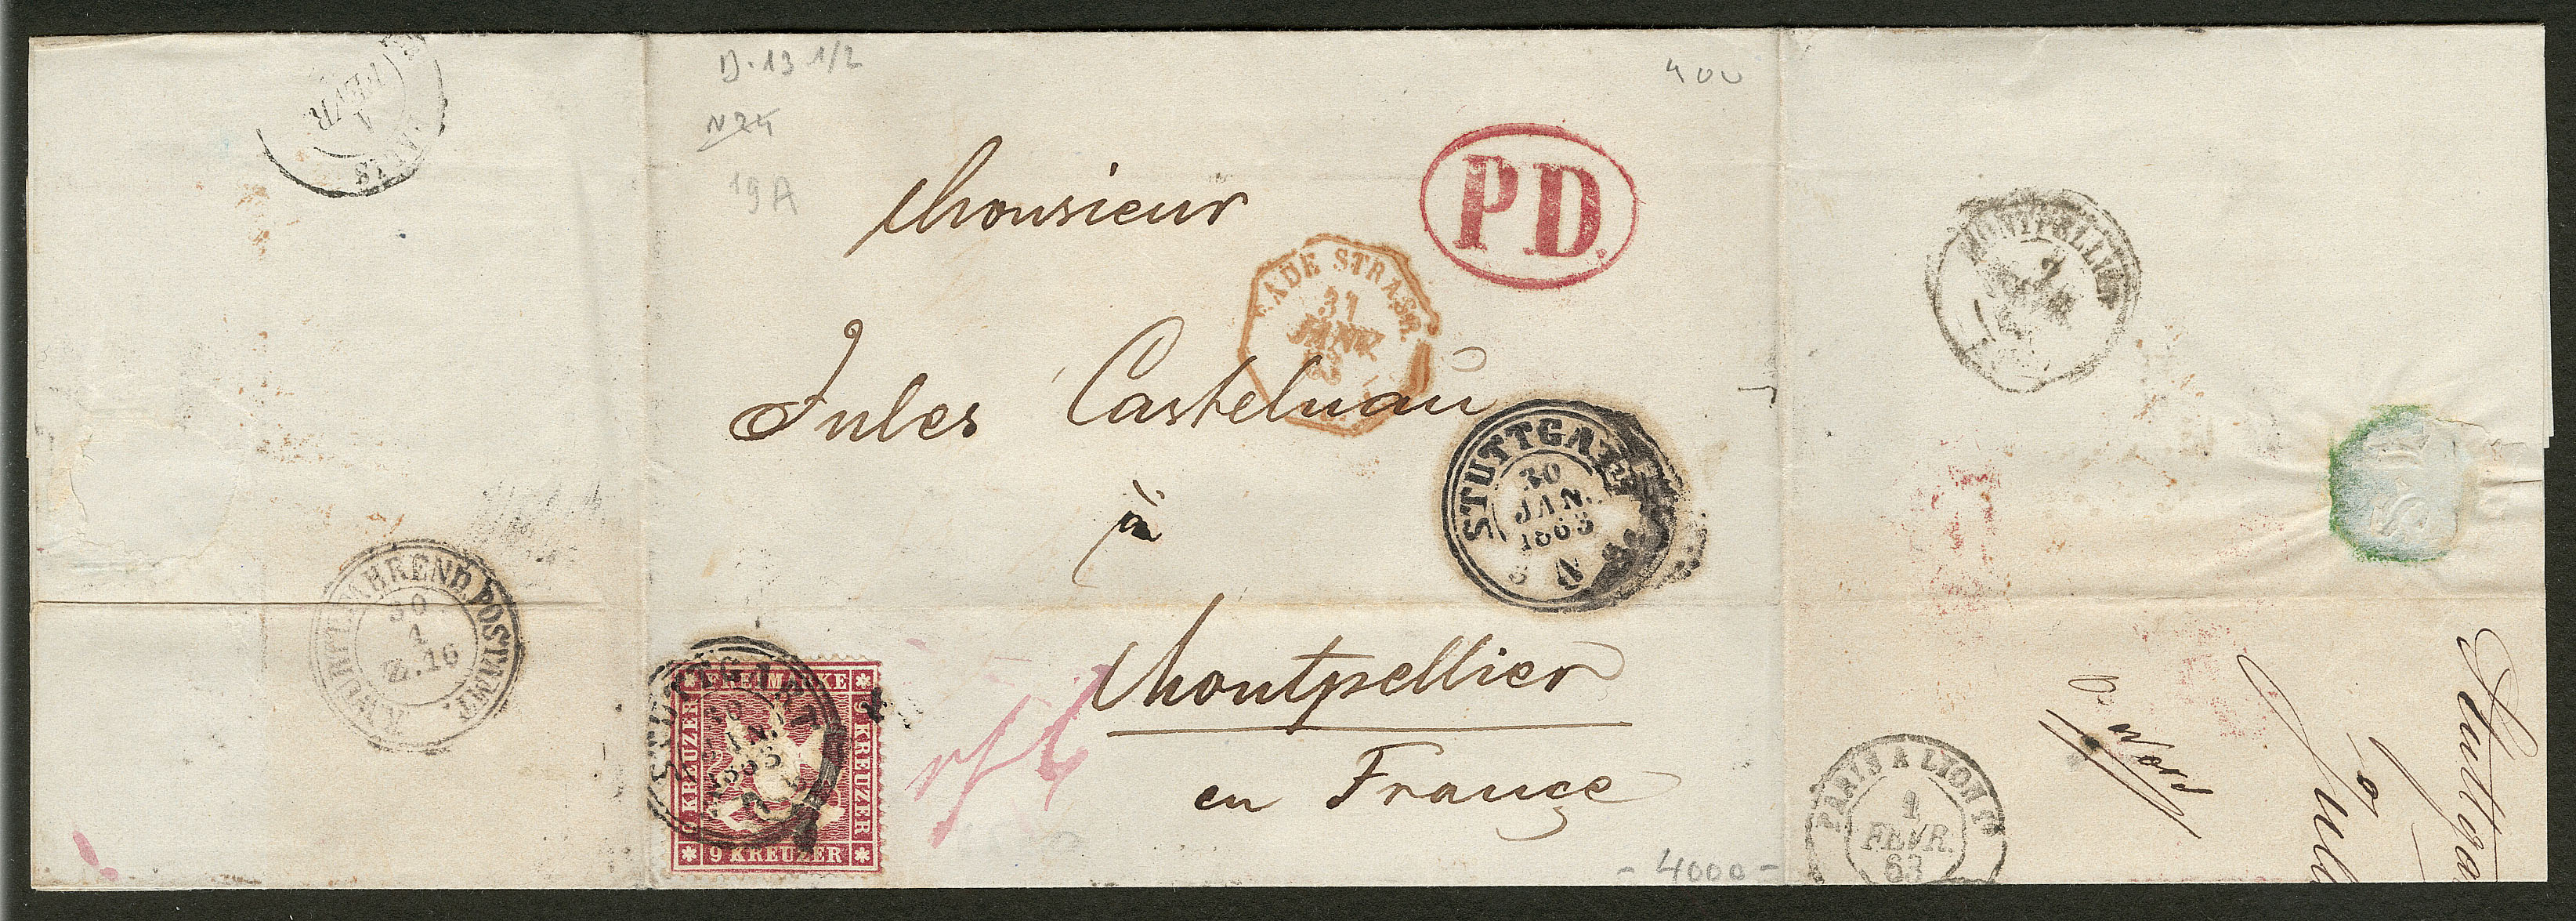 1
FEVR
PARIS
FAHREND. POSTAMT.
30
1
Z.16
D. 13 1/2
N 24
19A
400
Monsieur
PD.
STRASB.
31
JANV.
63
Jules Castelnau
STUTTGART
30
JAN.
1863
à
Montpellier
en France
STUTTGART
30
JAN.
1863
FREIMARKE
9 KREUZER
9 KREUZER
9 KREUZER
- 4000 -
MONTPELLIER
2
PARIS A LYON
1
FEVR.
63